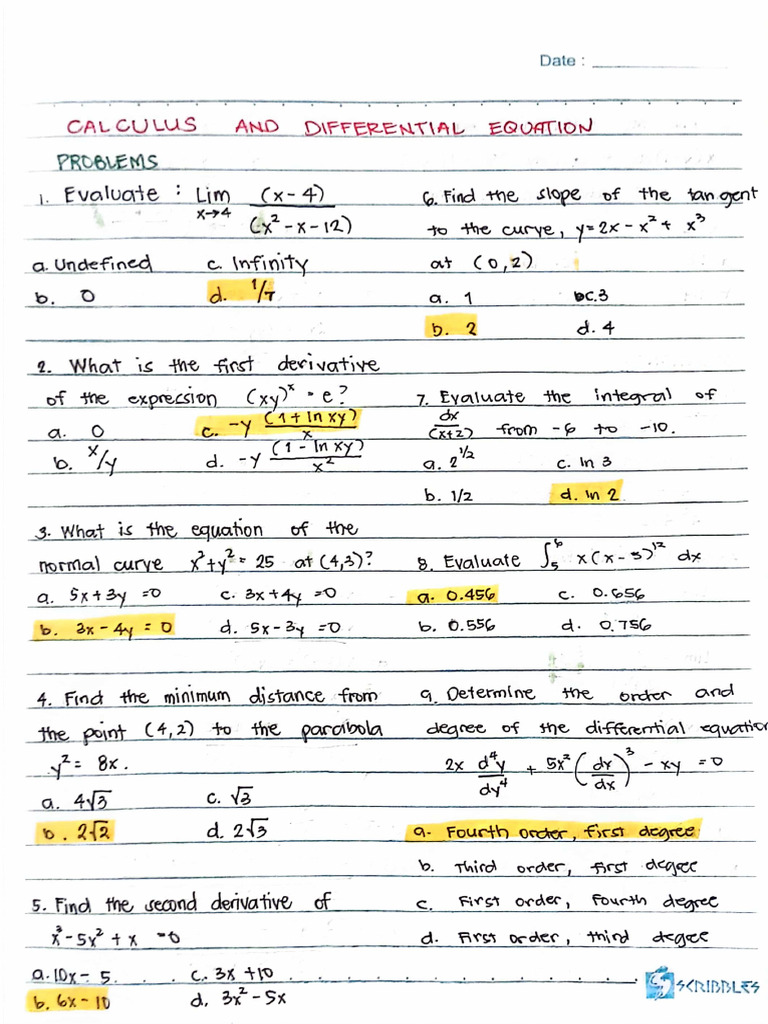 Date :
CALCULUS AND DIFFERENTIAL EQUATION
PROBLEMS
1. Evaluate : Lim x→4 (x-4) / (x² - x - 12)
a. Undefined c. Infinity
b. 0 d. 1/7
2. What is the first derivative
of the expression (xy)^x = e?
a. 0 c. -y (1 + ln xy) / x
b. x/y d. -y (1 - ln xy) / x²
3. What is the equation of the
normal curve x² + y² = 25 at (4,3)?
a. 5x + 3y = 0 c. 3x + 4y = 0
b. 3x - 4y = 0 d. 5x - 3y = 0
4. Find the minimum distance from
the point (4,2) to the parabola
y² = 8x.
a. 4√3 c. √3
b. 2√2 d. 2√3
5. Find the second derivative of
x³ - 5x² + x = 0
a. 10x - 5 c. 3x + 10
b. 6x - 10 d. 3x² - 5x
6. Find the slope of the tangent
to the curve, y = 2x - x² + x³
at (0,2)
a. 1 c. 3
b. 2 d. 4
7. Evaluate the integral of
dx / (x+2) from -6 to -10.
a. 2^1/2 c. ln 3
b. 1/2 d. ln 2
8. Evaluate ∫₅⁶ x(x-5)¹² dx
a. 0.456 c. 0.656
b. 0.556 d. 0.756
9. Determine the order and
degree of the differential equation
2x d⁴y/dy⁴ + 5x² (dx/dx)³ - xy = 0
a. Fourth order, first degree
b. Third order, first degree
c. First order, Fourth degree
d. First order, third degree
SCRIBBLES